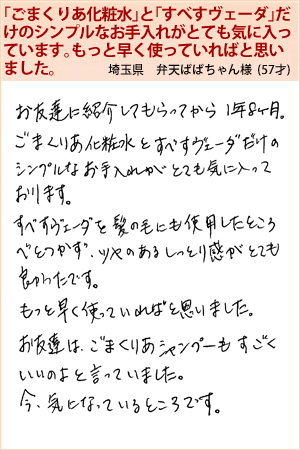 「ごまくりあ化粧水」と「すべすヴェーダ」だ
けのシンプルなお手入れがとても気に入っ
ています。もっと早く使っていればと思い
ました。
埼玉県　弁天ばばちゃん様 (57才)
お友達に紹介してもらってから 1年8ヶ月。
ごまくりあ化粧水とすべすヴェーダだけの
シンプルなお手入れがとても気に入って
おります。
すべすヴェーダを髪の毛にも使用したところ
べとつかず、ツヤのあるしっとり感がとても
良かったです。
もっと早く使っていればと思いました。
お友達は、ごまくりあシャンプーもすごく
いいのよと言っていました。
今、気になっているところです。